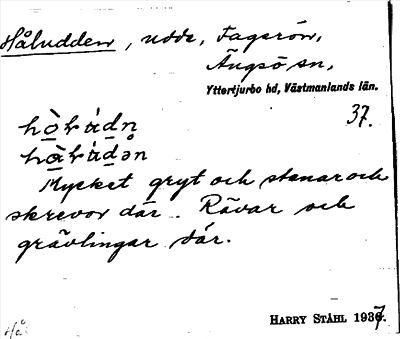 Håludden, udde, Fagerön,
Ängsö sn,
Yttertjurbo hd, Västmanlands län.
37.
Mycket gryt och stenar och
skrevor där. Rävar och
grävlingar där.
HARRY STÅHL 1937.
Hå